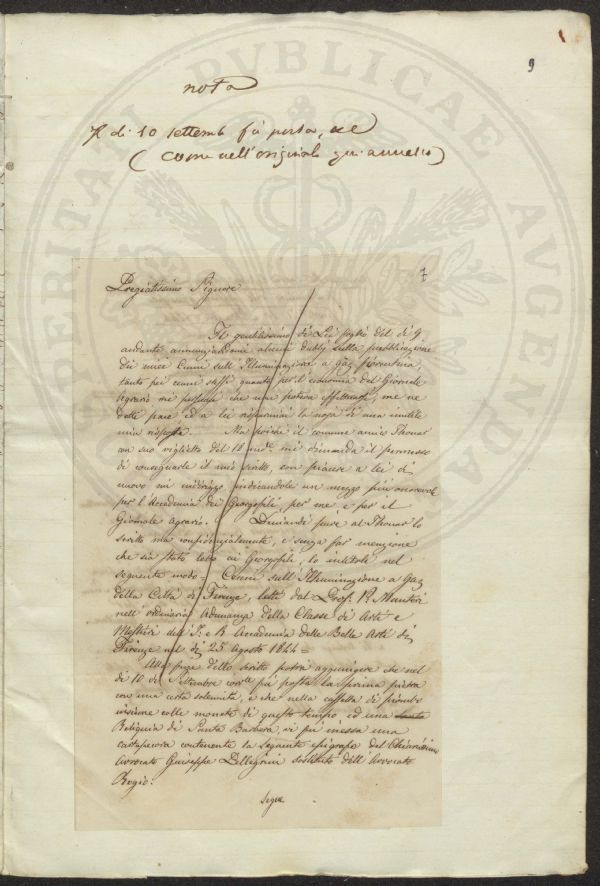 PROSPERITATI PVBLICAE AVGENDAE
9
nota
Il dì 10 settemb fu posta, ec
(Come nell'originale qui annesso)
7
Pregiatissimo Signore
Il gentilissimo di Lei foglio del dì 9
andante annunziandomi alcuni dubbj sulla pubblicazione
dei miei Cenni sull'Illuminazione a gaz fiorentina,
tanto pei cenni stessi quanto per l'economia del Giornale
Agrario mi persuase che non poteva effettuarsi, me ne
detti pace ed a lei risparmiai la noja di una inutile
mia risposta. Ma poichè il comune amico Thouar
con suo viglietto del 18 mi domanda il permesso
di consegnarle il mio scritto, con piacere a lei di
nuovo mi indirizzo indicandole un mezzo più onorevole
per l'Accademia dei Georgofili, per me e per il
Giornale agrario. Domandi pure al Thouar lo
scritto ma confidenzialmente, e senza far menzione
che sia stato letto ai Georgofili, lo intitoli nel
seguente modo - Cenni sull'Illuminazione a gaz
della Città di Firenze, letti dal Prof. R. Manteri
nell'ordinaria Adunanza della Classe di Arti e
Mestieri dell'I. e R. Accademia delle Belle Arti di
Firenze nel dì 25 Agosto 1844 =
Alla fine dello scritto potrà aggiungere che nel
dì 10 di Settembre corrte fu posta la prima pietra
con una certa solennità, e che nella cassetta di piombo
insieme colle monete di questo tempo, ed una santa
Reliquia di Santa Barbera, vi fu messa una
cartapecora contenente la seguente epigrafe del Chiarissimo
Avvocato Giuseppe Pellegrini sostituto dell'Avvocato
Regio:
segue